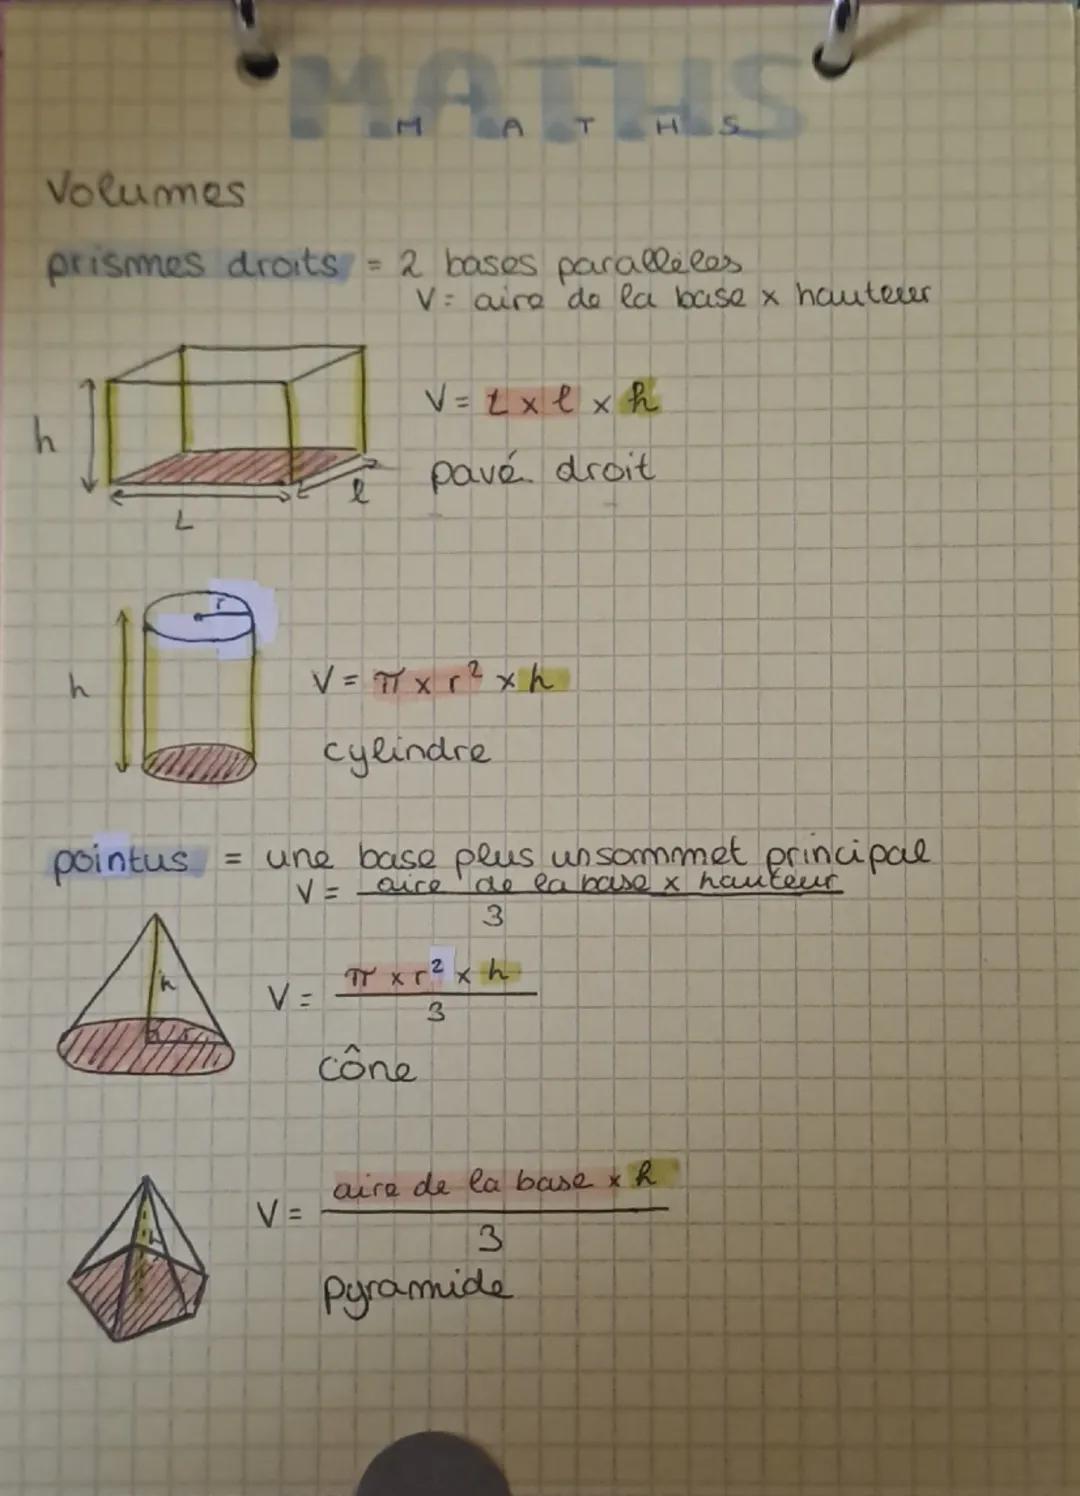 MATHS
M A T H S
Volumes
prismes droits = 2 bases parallèles
V = aire de la base x hauteur
h
L
l
V = L x l x h
pavé droit
r
h
V = π x r² x h
cylindre
pointus = une base plus un sommmet principal
V = aire de la base x hauteur
3
h
r
V = π x r² x h
3
cône
h
V = aire de la base x h
3
pyramide